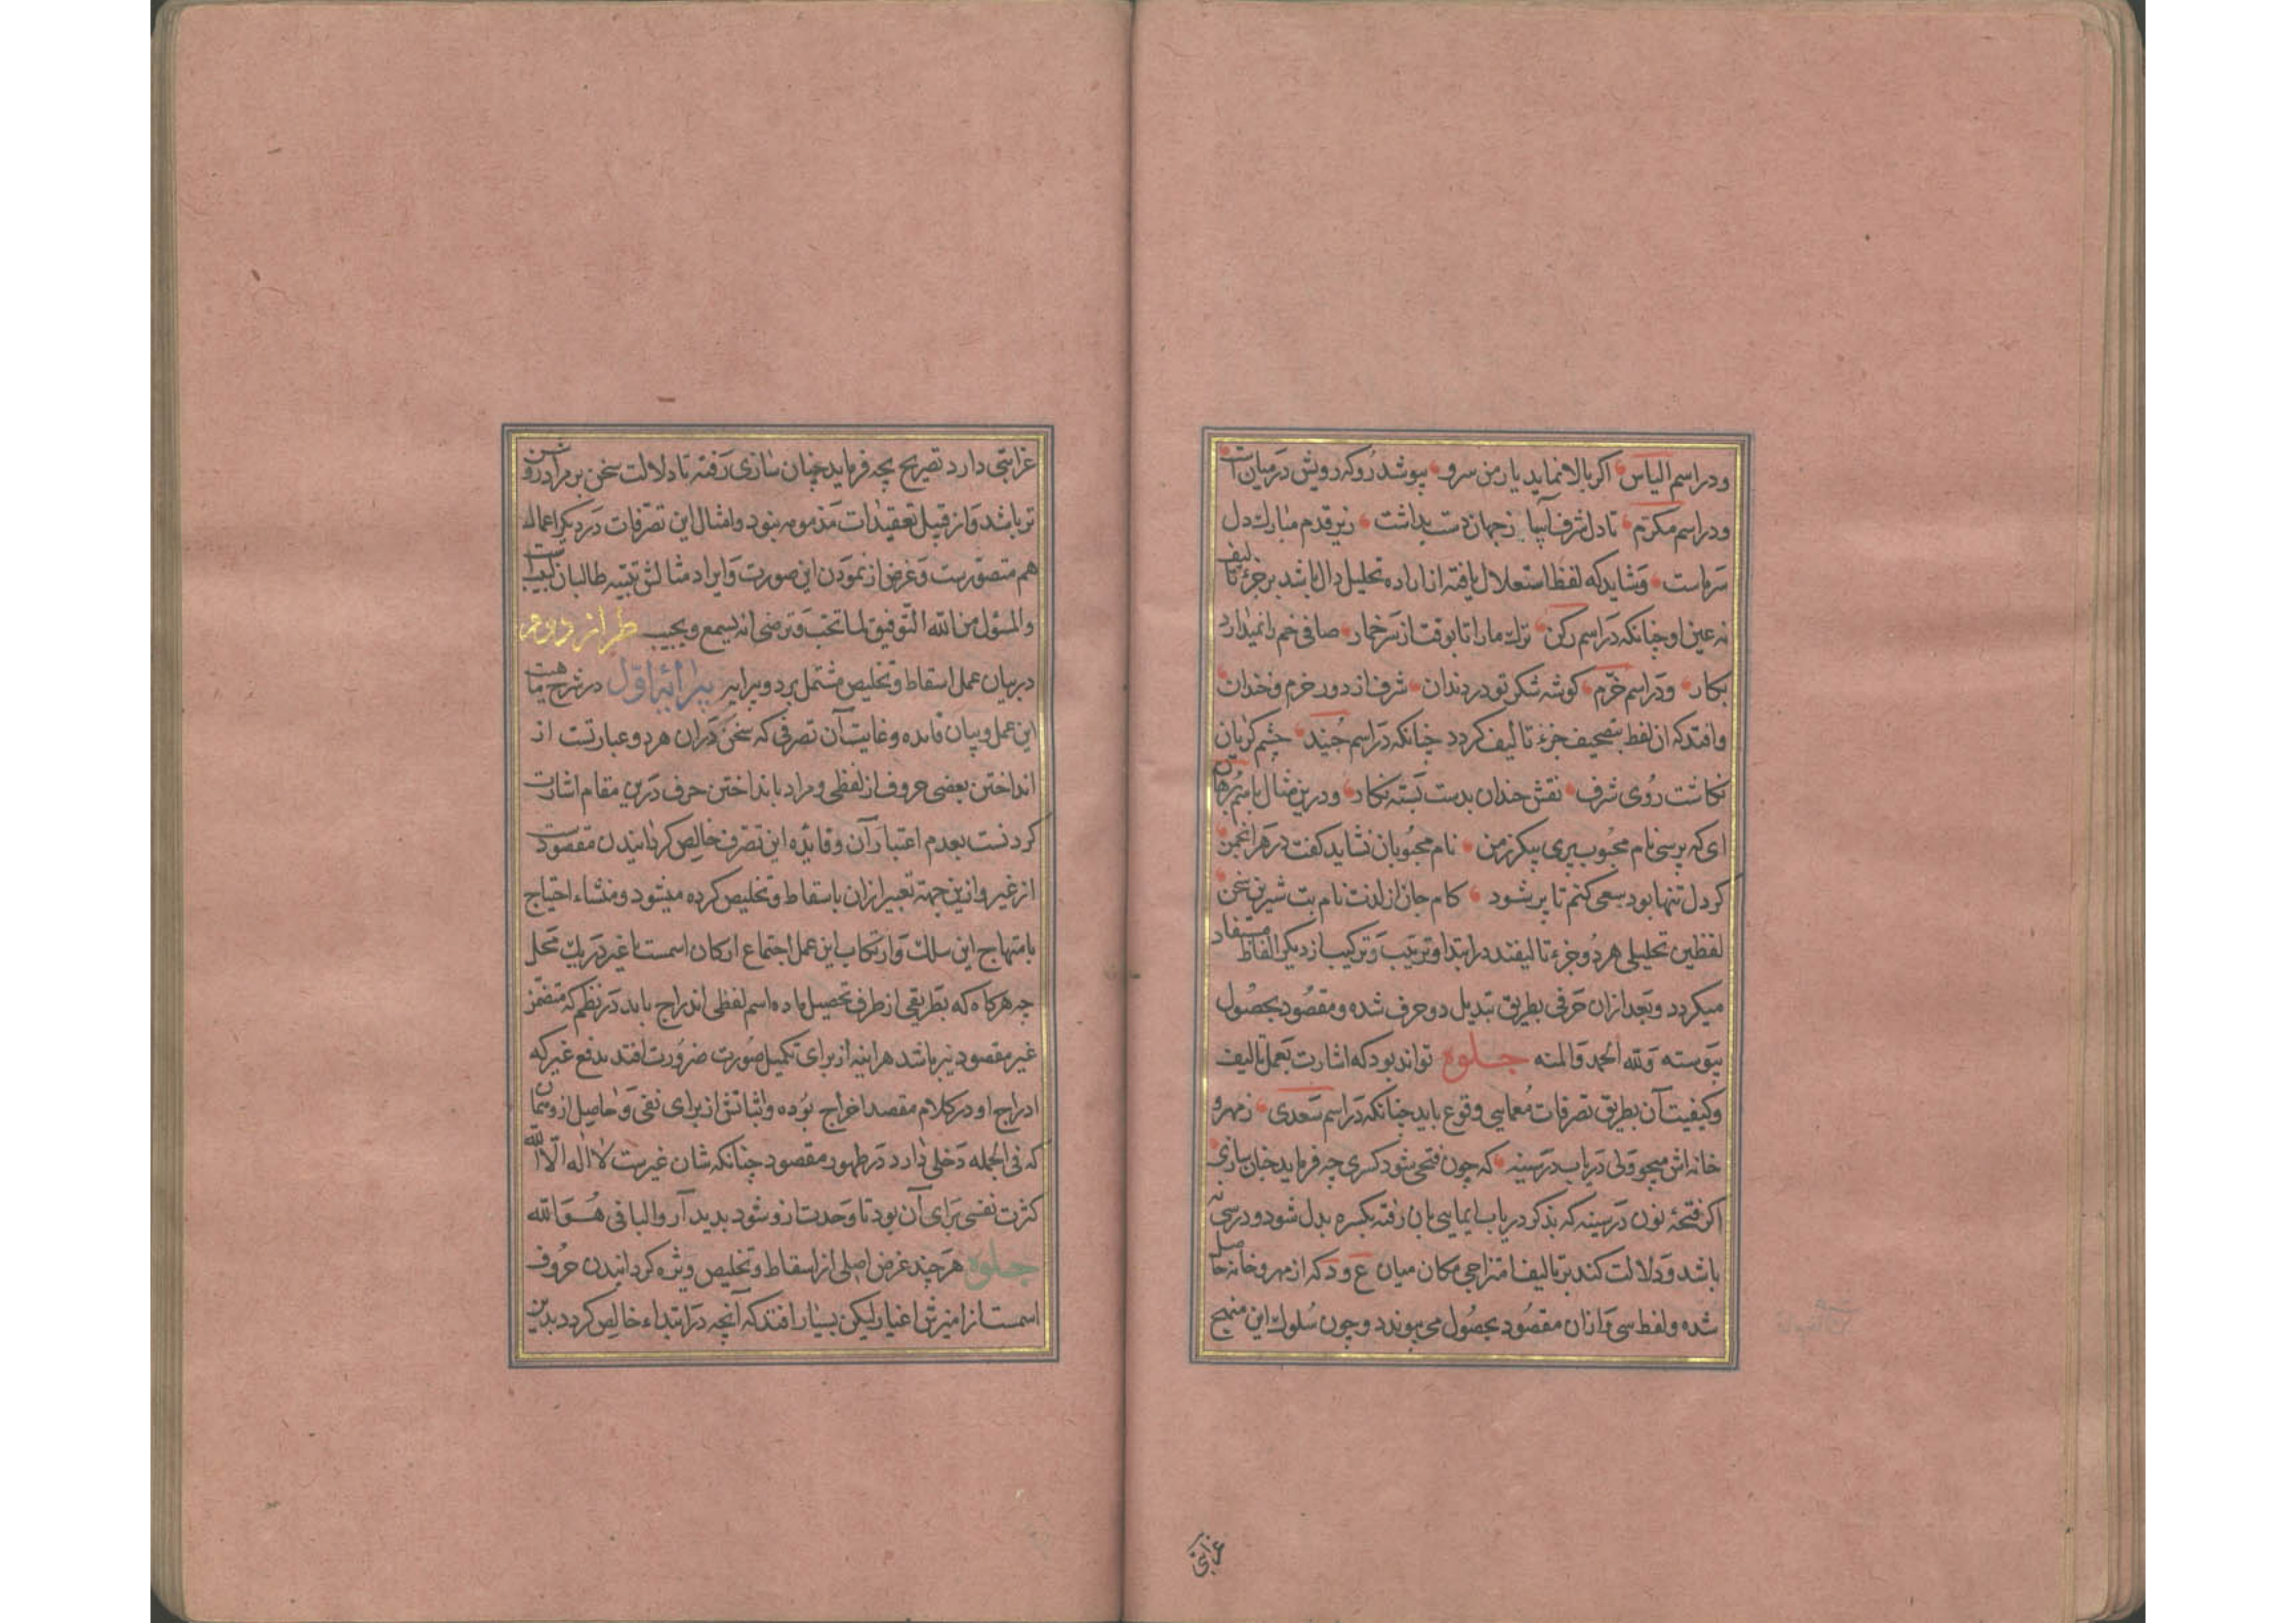 ودر اسم الیاس اکر بالا نماید یار من سرو بپوشد رو که رویش درمیان است
ودر اسم مکرم تا دل شرف آسا ز جهان دست بداشت زیر قدم مبارک دل
سرماست وشاید که لفظ استعلال یافته از ماده تحلیل دال باشد بر جزء تالیف
نه عین او چنانکه در اسم رکن ترک ما را تا بوقت از سر خمار صافی خم را نمیدارد
بکار ودر اسم خرم کوشه شکر تو در دندان شرف از دور خرم وخندان
وافتد که از لفظ بتصحیف جزء تالیف کردد چنانکه در اسم جنید چشم کریان
نکاشت روی شرف نقش خندان بدست بسته نکار ودرین مثال باسم برهان
ای که پرسی نام محبوب پری پیکر ز من نام محبوبان نشاید کفت در هر انجمن
کر دل تنها بود سعی کنم تا پر شود کام جان از لذت نام بت شیرین سخن
لفظین تحلیلی هر دو جزء تالیفند در ابتدا وترتیب وترکیب از دیکر الفاظ مستفاد
میکردد وبعد ازان حرفی بطریق تبدیل دو حرف شده ومقصود بحصول
پیوسته ولله الحمد والمنه جلوه تواند بود که اشارت بعمل تالیف
وکیفیت آن بطریق تصرفات معمایی وقوع یابد چنانکه در اسم سعدی ز مهر و
خانه اش میجو ولی دریاب در سینه که چون فتحی شود کسری چه فرماید خیان سازی
اکر فتحۀ نون در سینه که بذکر دریاب ایمایی بان رفته بکسره بدل شود در سی نه
باشد ودلالت کند بر تالیف امتزاجی مکان میان ع و د که از مهر وخانه حاصل
شده ولفظ سی وازان مقصود بحصول می پیوندد وچون سلوک این منهج
غرابتی
غرابتی دارد تصریح بچه فرماید چنان سازی رفته تا دلالت سخن بر مراد روشن
تر باشد واز قبیل تعقیدات مذمومه نبود وامثال این تصرفات در دیکر اعمال
هم متصورست وغرض از نمودن این صورت وایراد مثالش تنبیه طالبان لبیب است
والمسؤل من الله التوفیق لما تحب وترضی انه یسمع ویجیب طراز دوم
در بیان عمل اسقاط وتخلیص مشتمل بر دو پیرایه پیرایۀ اول در شرح ماهیت
این عمل وبیان فایده وغایت آن تصرفی که سخن دران هردو عبارتست از
انداختن بعضی حروف از لفظی ومراد بانداختن حرف درین مقام اشارت
کردنست بعدم اعتبار آن وفایده این تصرف خالص کردانیدن مقصودست
از غیر وازین جهة تعبیر ازان باسقاط وتخلیص کرده میشود ومنشاء احتیاج
بانتهاج این سلک وارتکاب این عمل اجتماع ارکان اسمست با غیر در یک محل
چه هرکاه که بطریقی از طرف تحصیل ماده اسم لفظی اندراج یابد در نظم که متضمن
غیر مقصود نیز باشد هراینه از برای تکمیل صورت ضرورت افتد بدفع غیر که
ادراج او در کلام مقصد اخراج بوده واثباتش از برای نفی وحاصل ازو همان
که فی الجمله دخلی دارد در ظهور مقصود چنانکه شان غیرست لا اله الا الله
کثرت نفسی برای آن بود تا وحدت ازو شود بدید آر والباقی هو الله
جلوه هر چند غرض اصلی از اسقاط وتخلیص ویژه کردانیدن حروف
اسمست از امیزش اغیار لیکن بسیار افتد که آنچه در ابتداء خالص کردد بدین